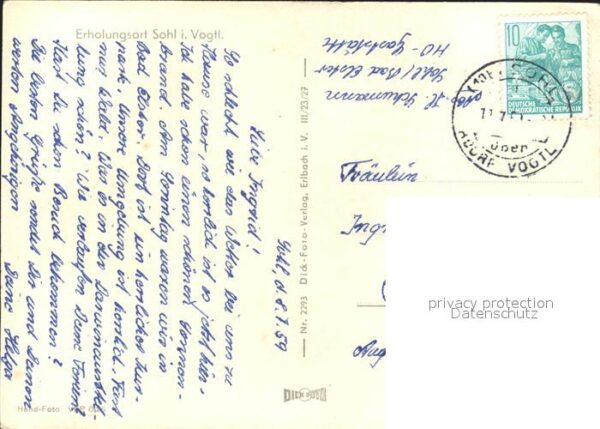 Erholungsort Sohl i. Vogtl.
Sohl, d. 8.7.59
Liebe Ingrid!
So schlecht wie das Wetter bei uns zu
Hause war, so herrlich ist es jetzt hier.
Ich habe schon einen schönen Sonnen-
brand. Am Sonntag waren wir in
Bad Elster. Dort ist ein herrlicher Kur-
park. Unsere Umgebung ist herrlich. Fast
nur Wald. Was in der
Wie verlaufen Deine Ferien?
Hast Du schon Besuch bekommen?
Die besten Grüße sendet Dir und Deinen
werten Angehörigen
Deine Helga
Hand-Foto
Nr. 2293 Dick-Foto-Verlag, Erlbach i. V. III/23/27
DICK
Abs. H. Schumann
Sohl / Bad Elster
HO - Gaststätte
10
DEUTSCHE
DEMOKRATISCHE REPUBLIK
SOHL
über
ADORF VOGTL
Fräulein
privacy protection
Datenschutz